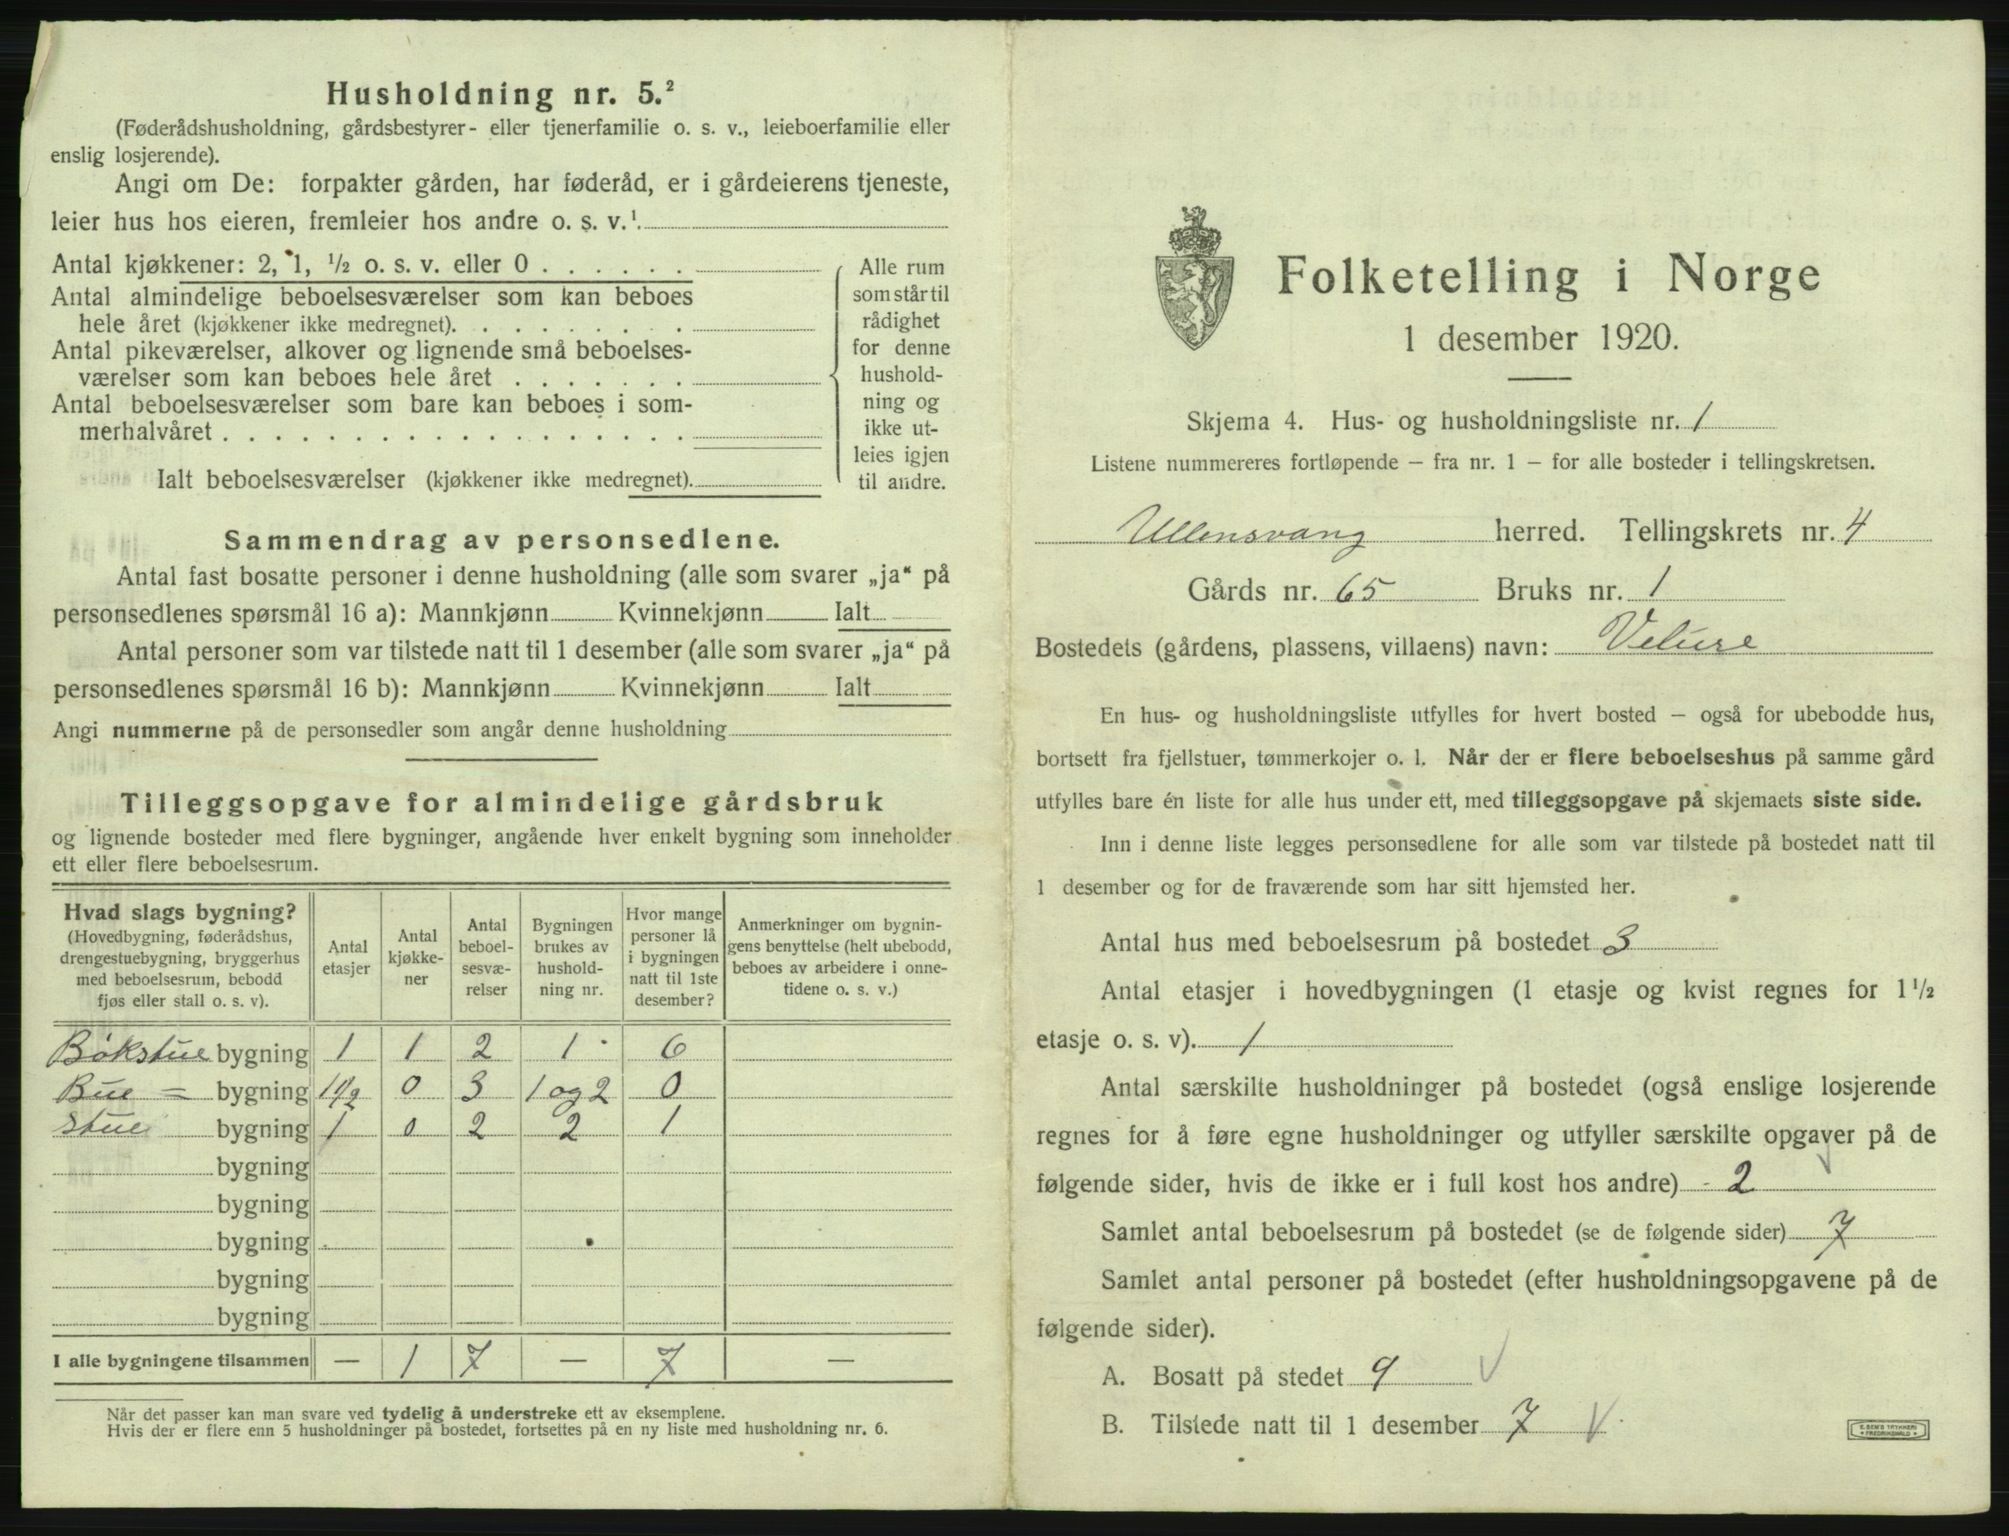 Husholdning nr. 5.²
(Føderådshusholdning, gårdsbestyrer- eller tjenerfamilie o. s. v., leieboerfamilie eller
enslig losjerende).
Angi om De: forpakter gården, har føderåd, er i gårdeierens tjeneste,
leier hus hos eieren, fremleier hos andre o. s. v.¹
Antal kjøkkener: 2, 1, ½ o. s. v. eller 0 . . . . . .
Antal almindelige beboelsesværelser som kan beboes
hele året (kjøkkener ikke medregnet). . . . . . . . .
Antal pikeværelser, alkover og lignende små beboelses-
værelser som kan beboes hele året . . . . . . .
Antal beboelsesværelser som bare kan beboes i som-
merhalvåret . . . . . . . . . . . . . . . . . .
Ialt beboelsesværelser (kjøkkener ikke medregnet).
Alle rum
som står til
rådighet
for denne
hushold-
ning og
ikke ut-
leies igjen
til andre.
Sammendrag av personsedlene.
Antal fast bosatte personer i denne husholdning (alle som svarer „ja“ på
personsedlenes spørsmål 16 a): Mannkjønn Kvinnekjønn Ialt
Antal personer som var tilstede natt til 1 desember (alle som svarer „ja“ på
personsedlenes spørsmål 16 b): Mannkjønn Kvinnekjønn Ialt
Angi nummerne på de personsedler som angår denne husholdning
Tilleggsopgave for almindelige gårdsbruk
og lignende bosteder med flere bygninger, angående hver enkelt bygning som inneholder
ett eller flere beboelsesrum.
Hvad slags bygning?
(Hovedbygning, føderådshus,
drengestuebygning, bryggerhus
med beboelsesrum, bebodd
fjøs eller stall o. s. v).
Antal
etasjer
Antal
kjøkke-
ner
Antal
beboel-
sesvæ-
relser
Bygningen
brukes av
hushold-
ning nr.
Hvor mange
personer lå
i bygningen
natt til 1ste
desember?
Anmerkninger om bygnin-
gens benyttelse (helt ubebodd,
beboes av arbeidere i onne-
tidene o. s. v.)
Bøkstue bygning 1 1 2 1 6
Bue = bygning 1 1/2 0 3 1 og 2 0
stue bygning 1 0 2 2 1
bygning
bygning
bygning
bygning
bygning
I alle bygningene tilsammen — 1 7 — 7 —
Når det passer kan man svare ved tydelig å understreke ett av eksemplene.
Hvis der er flere enn 5 husholdninger på bostedet, fortsettes på en ny liste med husholdning nr. 6.
Folketelling i Norge
1 desember 1920.
Skjema 4. Hus- og husholdningsliste nr. 1
Listene nummereres fortløpende – fra nr. 1 – for alle bosteder i tellingskretsen.
Ullensvang herred. Tellingskrets nr. 4
Gårds nr. 65 Bruks nr. 1
Bostedets (gårdens, plassens, villaens) navn: Velure
En hus- og husholdningsliste utfylles for hvert bosted – også for ubebodde hus,
bortsett fra fjellstuer, tømmerkojer o. l. Når der er flere beboelseshus på samme gård
utfylles bare én liste for alle hus under ett, med tilleggsopgave på skjemaets siste side.
Inn i denne liste legges personsedlene for alle som var tilstede på bostedet natt til
1 desember og for de fraværende som har sitt hjemsted her.
Antal hus med beboelsesrum på bostedet 3
Antal etasjer i hovedbygningen (1 etasje og kvist regnes for 1½
etasje o. s. v). 1
Antal særskilte husholdninger på bostedet (også enslige losjerende
regnes for å føre egne husholdninger og utfyller særskilte opgaver på de
følgende sider, hvis de ikke er i full kost hos andre) 2
Samlet antal beboelsesrum på bostedet (se de følgende sider) 7
Samlet antal personer på bostedet (efter husholdningsopgavene på de
følgende sider).
A. Bosatt på stedet 9
B. Tilstede natt til 1 desember 7